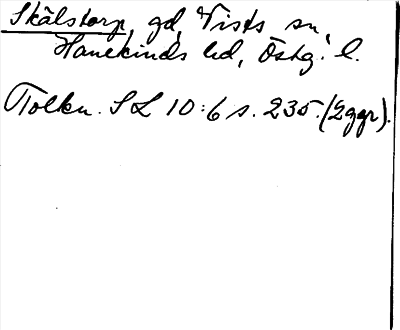 Skälstorp, gd, Vists sn,
Hanekinds hd, Östg. l.
Tolkn. SL 10:6 s. 235. (2 ggr).